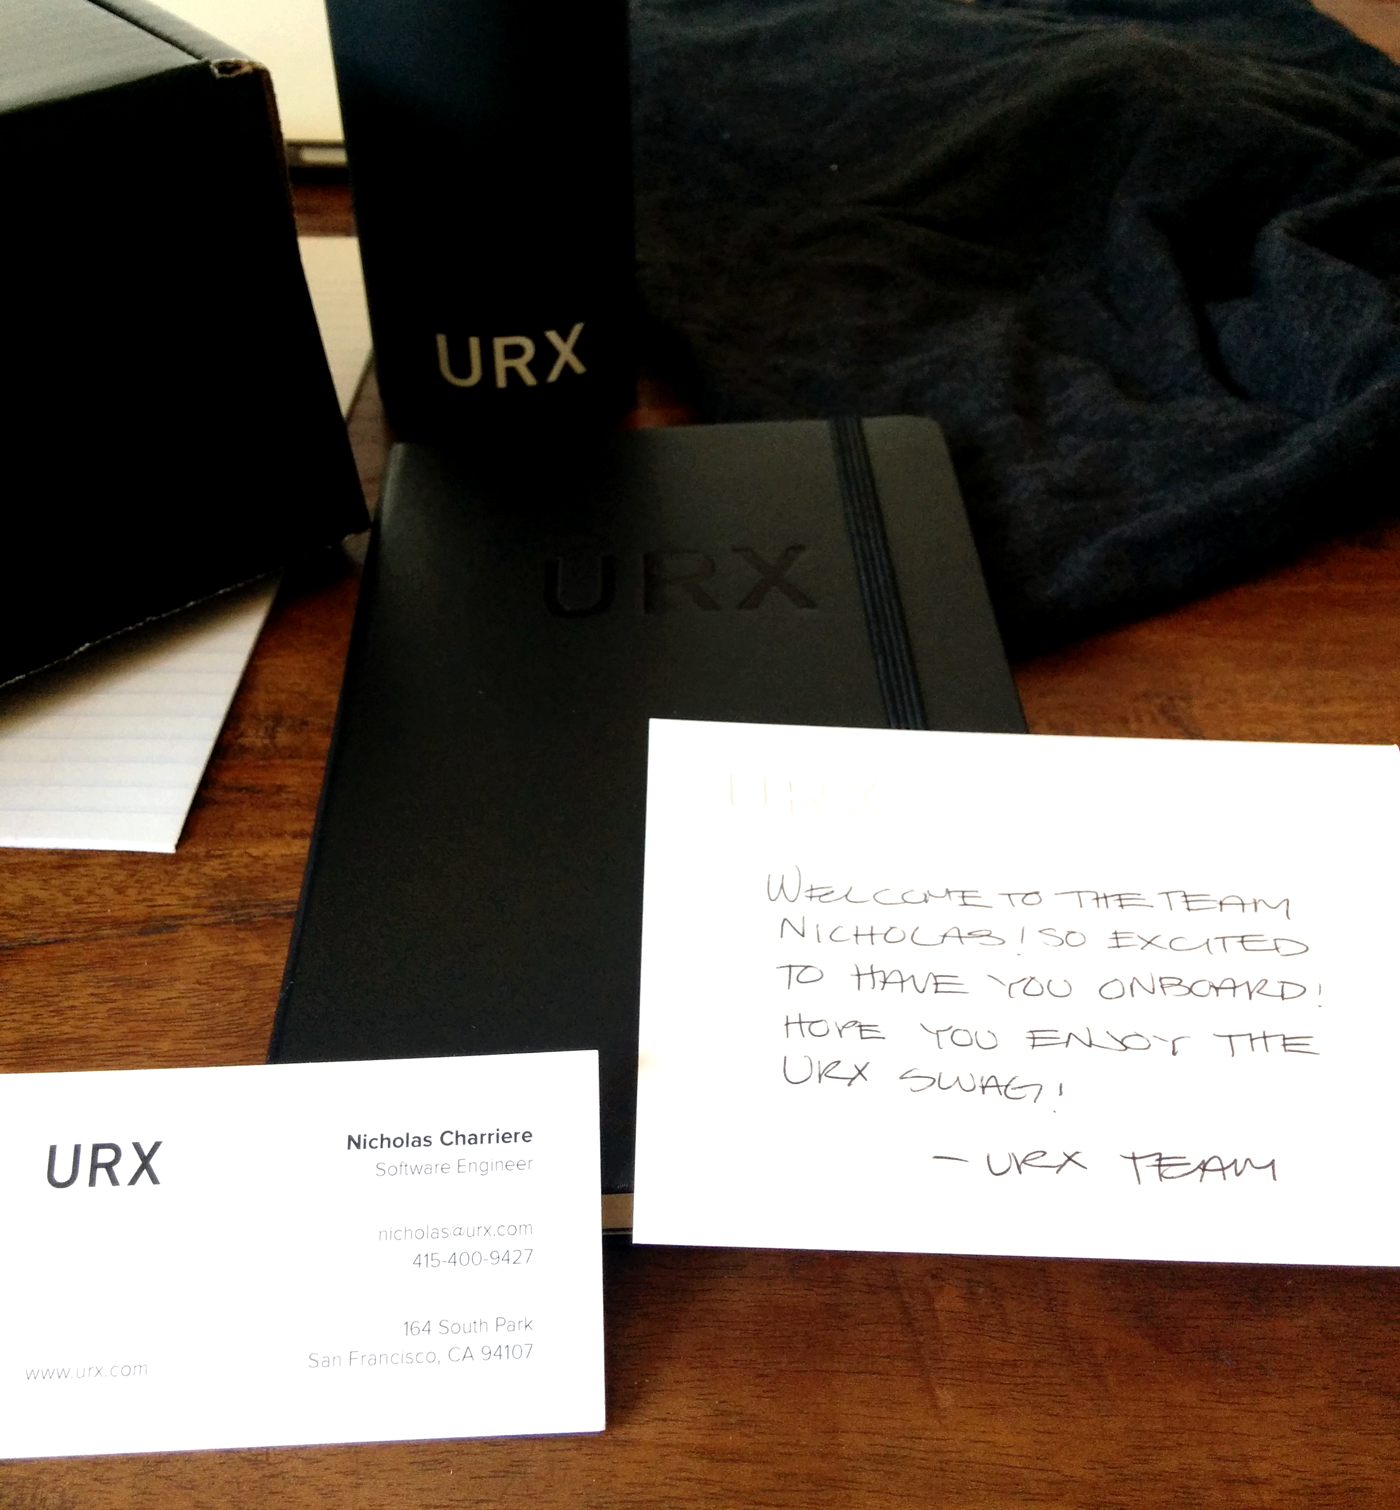 URX
URX
URX
WELCOME TO THE TEAM
NICHOLAS! SO EXCITED
TO HAVE YOU ONBOARD!
HOPE YOU ENJOY THE
URX SWAG!
- URX TEAM
URX
Nicholas Charriere
Software Engineer
nicholas@urx.com
415-400-9427
164 South Park
San Francisco, CA 94107
www.urx.com